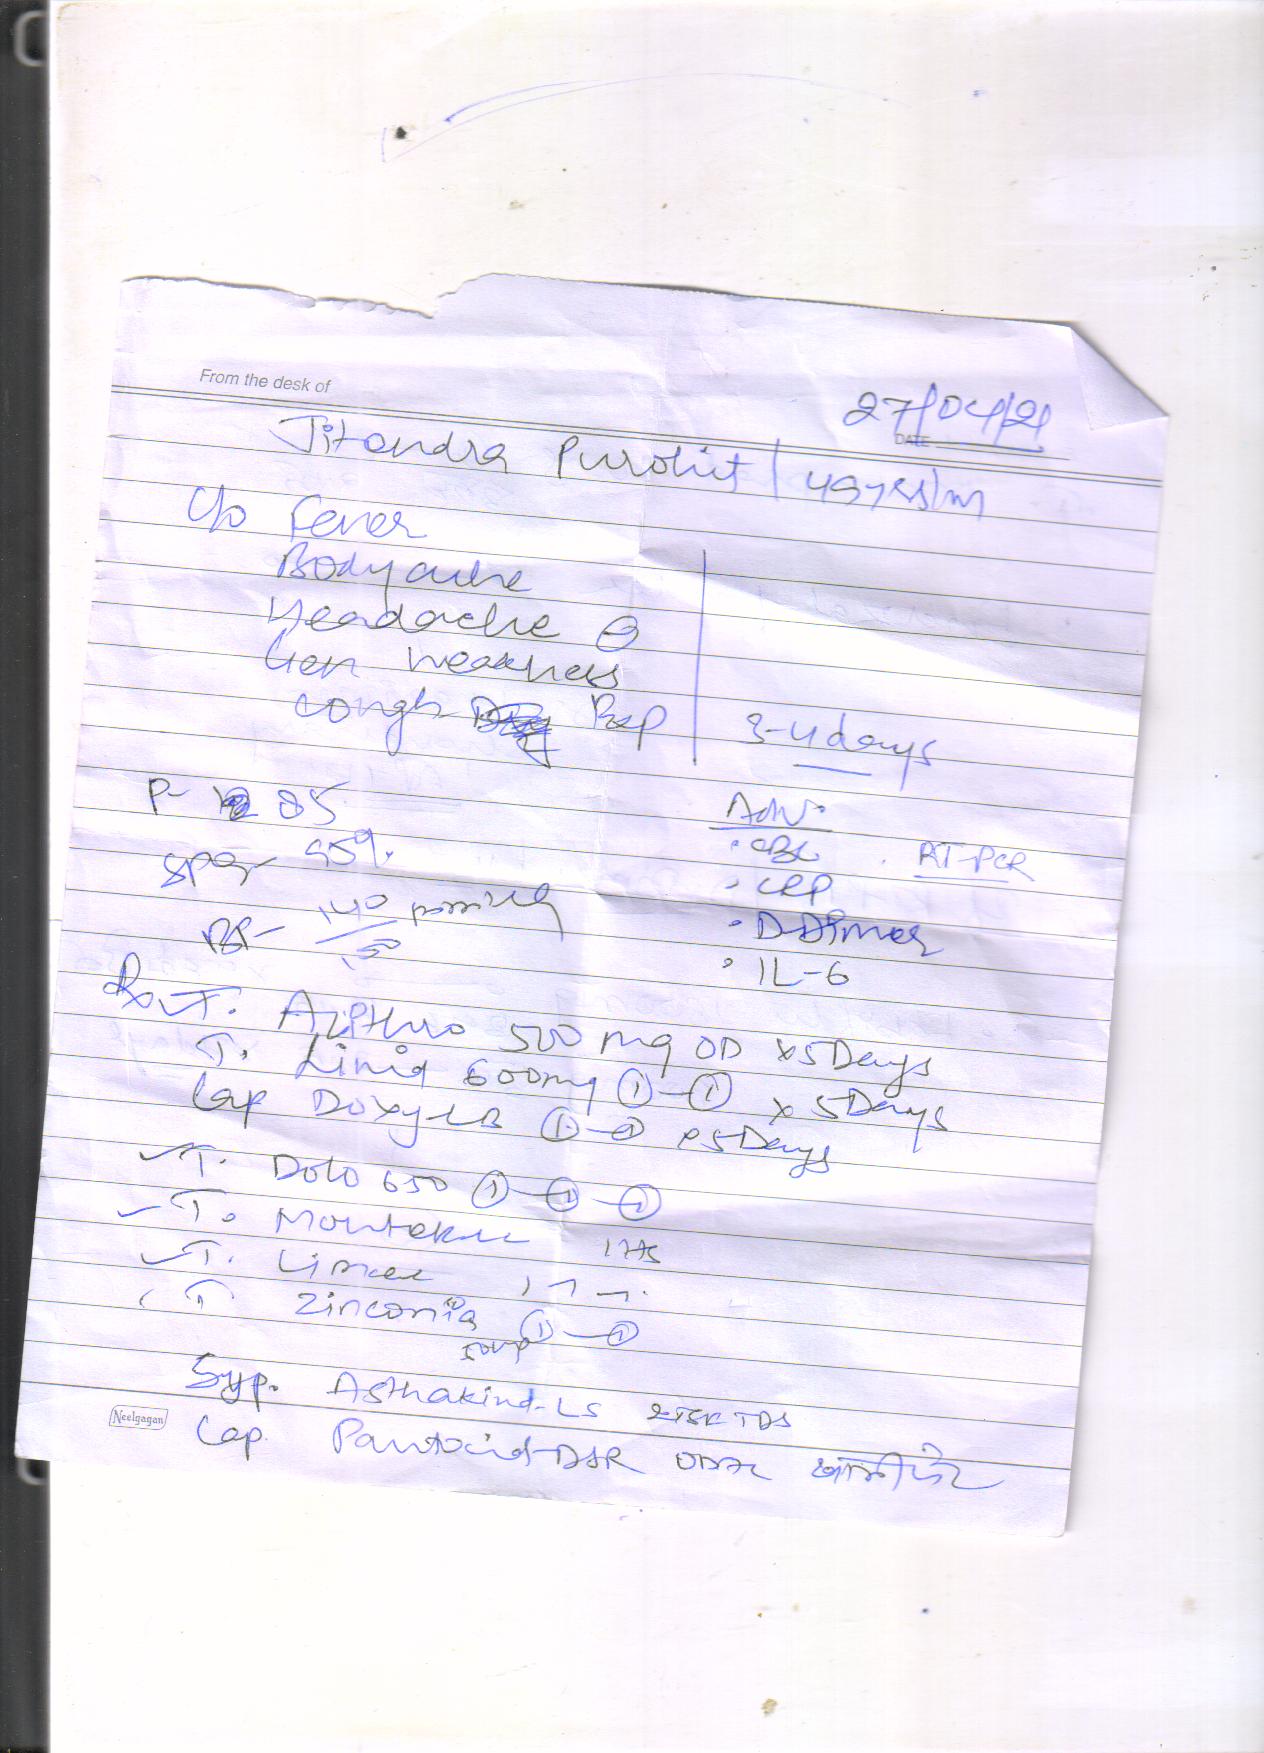 From the desk of
27/04/21
DATE
Jitendra Purohit / 49 yrs/m
C/o Fever
Bodyache
Headache
Gen weakness
Cough
3-4 days
P- 85
SPO2- 95%
BP- 140
Adv.
• CBC . RT-PCR
• CRP
• D-Dimer
• IL-6
Rx T. Azithro 500 mg OD x5 Days
T. Linid 600mg ①-① x 5 Days
Cap Doxy-LB ①-① x5 Days
T. Dolo 650 ①-①-①
T. Montek LC 1 HS
T. Limcee 1 1 1
T Zinconia ①-①
50mg
Syp. Asthakind-LS 2TSF TDS
Neelgagan
Cap. Pantocid-DSR OD खाली पेट